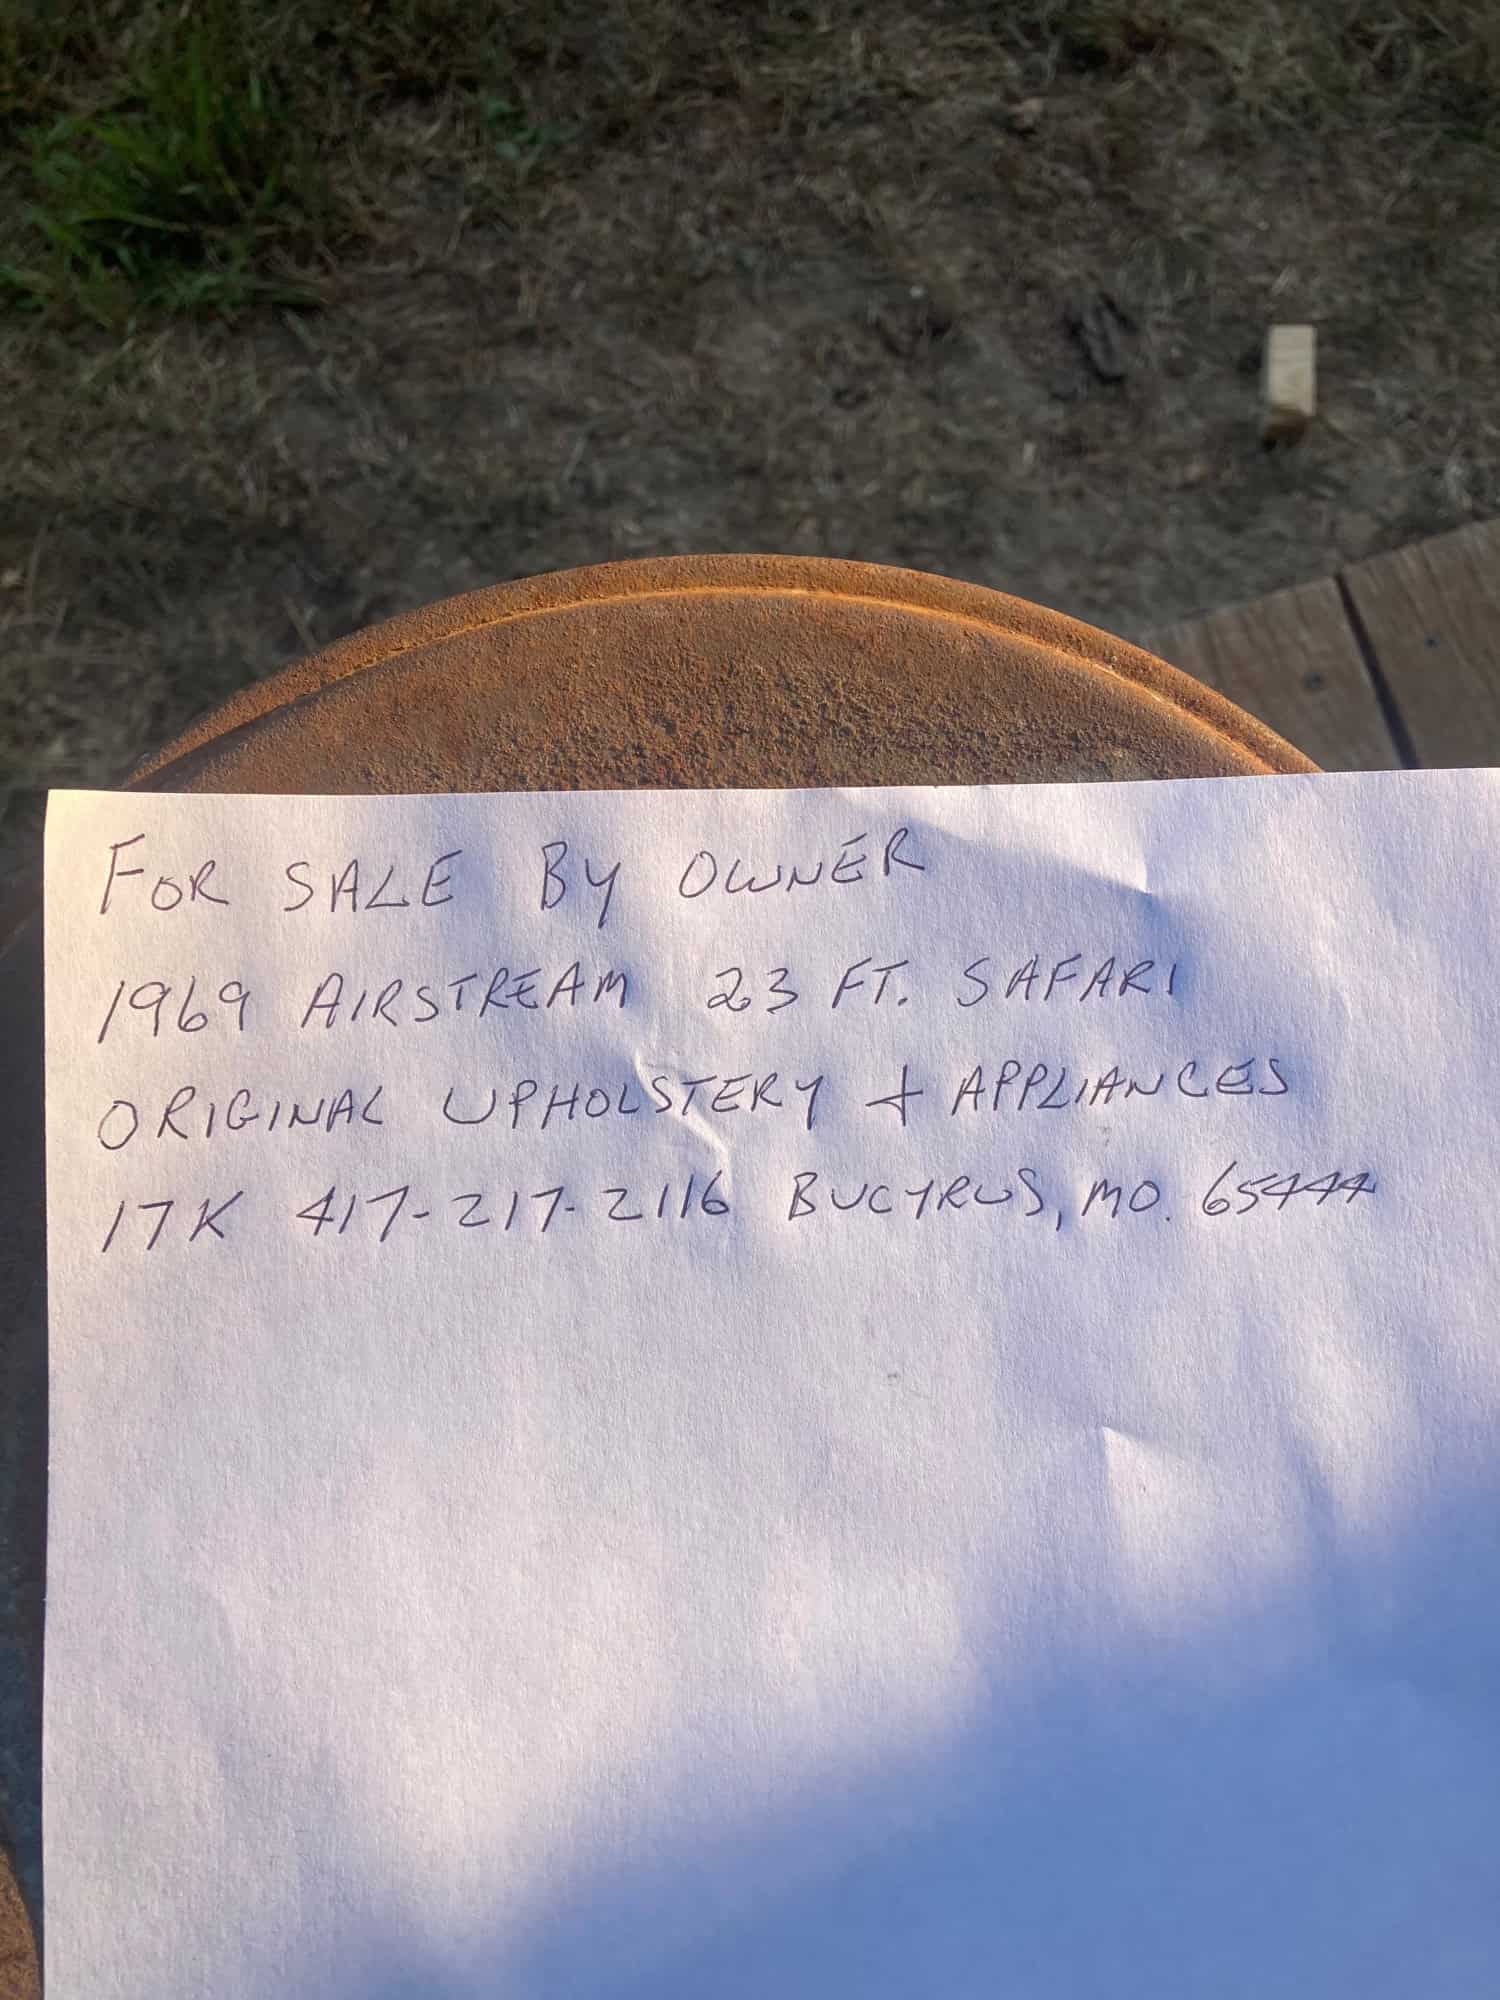 FOR SALE BY OWNER
1969 AIRSTREAM 23 FT. SAFARI
ORIGINAL UPHOLSTERY + APPLIANCES
17K 417-217-2116 BUCYRUS, MO. 65444